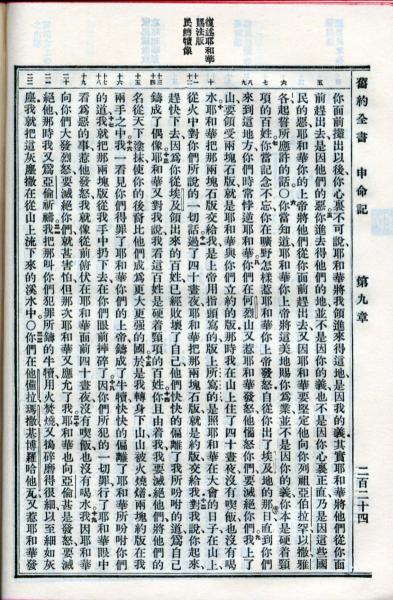 復述耶和華
賜法版
民鑄犢像
舊約全書 申命記 第九章 二百二十四
你面前攆出以後你心裏不可說耶和華將我領進來得這地是因我的義其實耶和華將他們從你面
前趕出去是因他們的惡你進去得他們的地並不是因你的義也不是因你心裏正直乃是因這些國
民的惡耶和華你的上帝將他們從你面前趕出去又因耶和華要堅定他向你列祖亞伯拉罕以撒雅
各起誓所應許的話○你當知道耶和華你上帝將這美地賜你為業並不是因你的義你本是硬着頸
項的百姓你當記念不忘你在曠野怎樣惹耶和華你上帝發怒自從你出了埃及地的那日直到你們
來到這地方你們時常悖逆耶和華你們在何烈山又惹耶和華發怒他惱怒你們要滅絕你們我上了
山要領受兩塊石版就是耶和華與你們立約的版那時我在山上住了四十晝夜沒有喫飯也沒有喝
水耶和華把那兩塊石版交給我是上帝用指頭寫的版上所寫的是照耶和華在大會的日子在山上
從火中對你們所說的一切話過了四十晝夜耶和華把那兩塊石版就是約版交給我對我說你起來
趕快下去因為你從埃及領出來的百姓已經敗壞了自己他們快快的偏離了我所吩咐的道為自己
鑄成了偶像耶和華又對我說我看這百姓是硬着頸項的百姓你且由着我我要滅絕他們將他們的
名從天下塗抹使你的後裔比他們成為更大更強的國於是我轉身下山山被火燒着兩塊約版在我
兩手之中我一看見你們得罪了耶和華你們的上帝鑄成了牛犢快快的偏離了耶和華所吩咐你們
的道我就把那兩塊版從我手中扔下去在你們眼前摔碎了因你們所犯的一切罪行了耶和華眼中
看為惡的事惹他發怒我就像從前俯伏在耶和華面前四十晝夜沒有喫飯也沒有喝水我因耶和華
向你們大發烈怒要滅絕你們就甚害怕但那次耶和華又應允了我耶和華也向亞倫甚是發怒要滅
絕他那時我又為亞倫祈禱我把那叫你們犯罪所鑄的牛犢用火焚燒又搗碎磨得很細以至細如灰
塵我就把這灰塵撒在從山上流下來的溪水中○你們在他備拉瑪撒基博羅哈他瓦又惹耶和華發